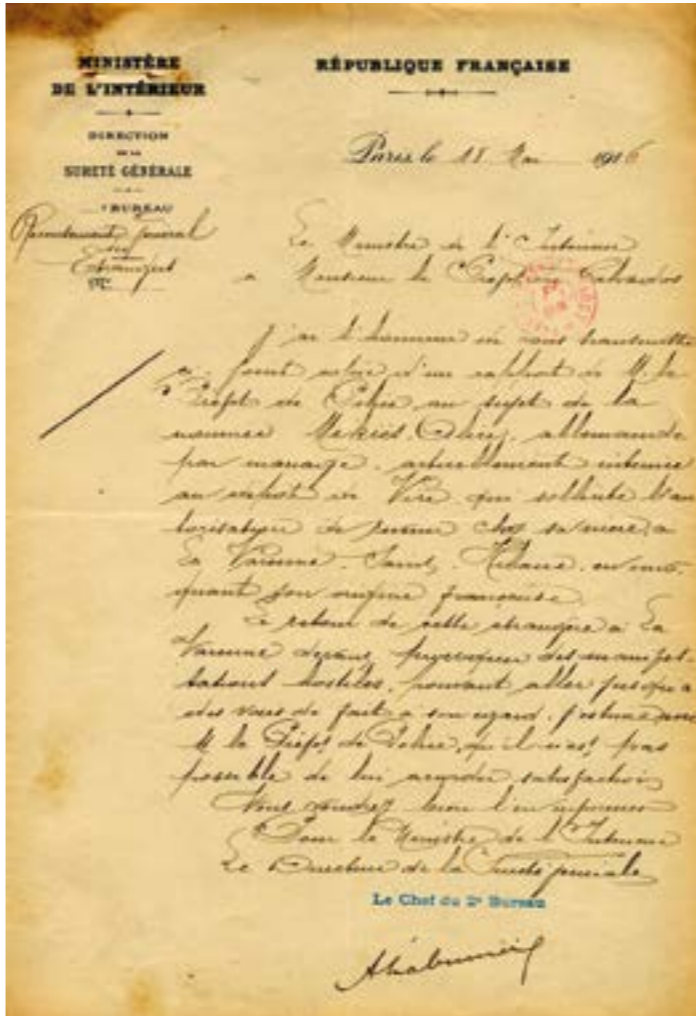 MINISTÈRE
DE L'INTÉRIEUR
DIRECTION
DE LA
SURETÉ GÉNÉRALE
BUREAU
Recensement Général
des
Etrangers
RÉPUBLIQUE FRANÇAISE
Paris le 18 Mai 1916
Le Ministre de l'Intérieur
à Monsieur le Préfet du Calvados
J'ai l'honneur de vous transmettre
ci joint d'un rapport de M. le
Préfet de Police au sujet de la
nommée allemande
par mariage, actuellement internée
au dépôt de Vire qui sollicite l'au
torisation de chez sa mère, à
La Varenne Saint Hilaire, en invo
quant son origine française.
Le retour de cette étrangère à La
Varenne devant provoquer des manifes
tations hostiles, pouvant aller jusqu'à
des voies de fait à son égard, j'estime avec
M. le Préfet de Police, qu'il n'est pas
possible de lui accorder satisfaction
Vous voudrez bien l'en informer
Pour le Ministre de l'Intérieur
Le Directeur de la Sureté générale
Le Chef du 2e Bureau